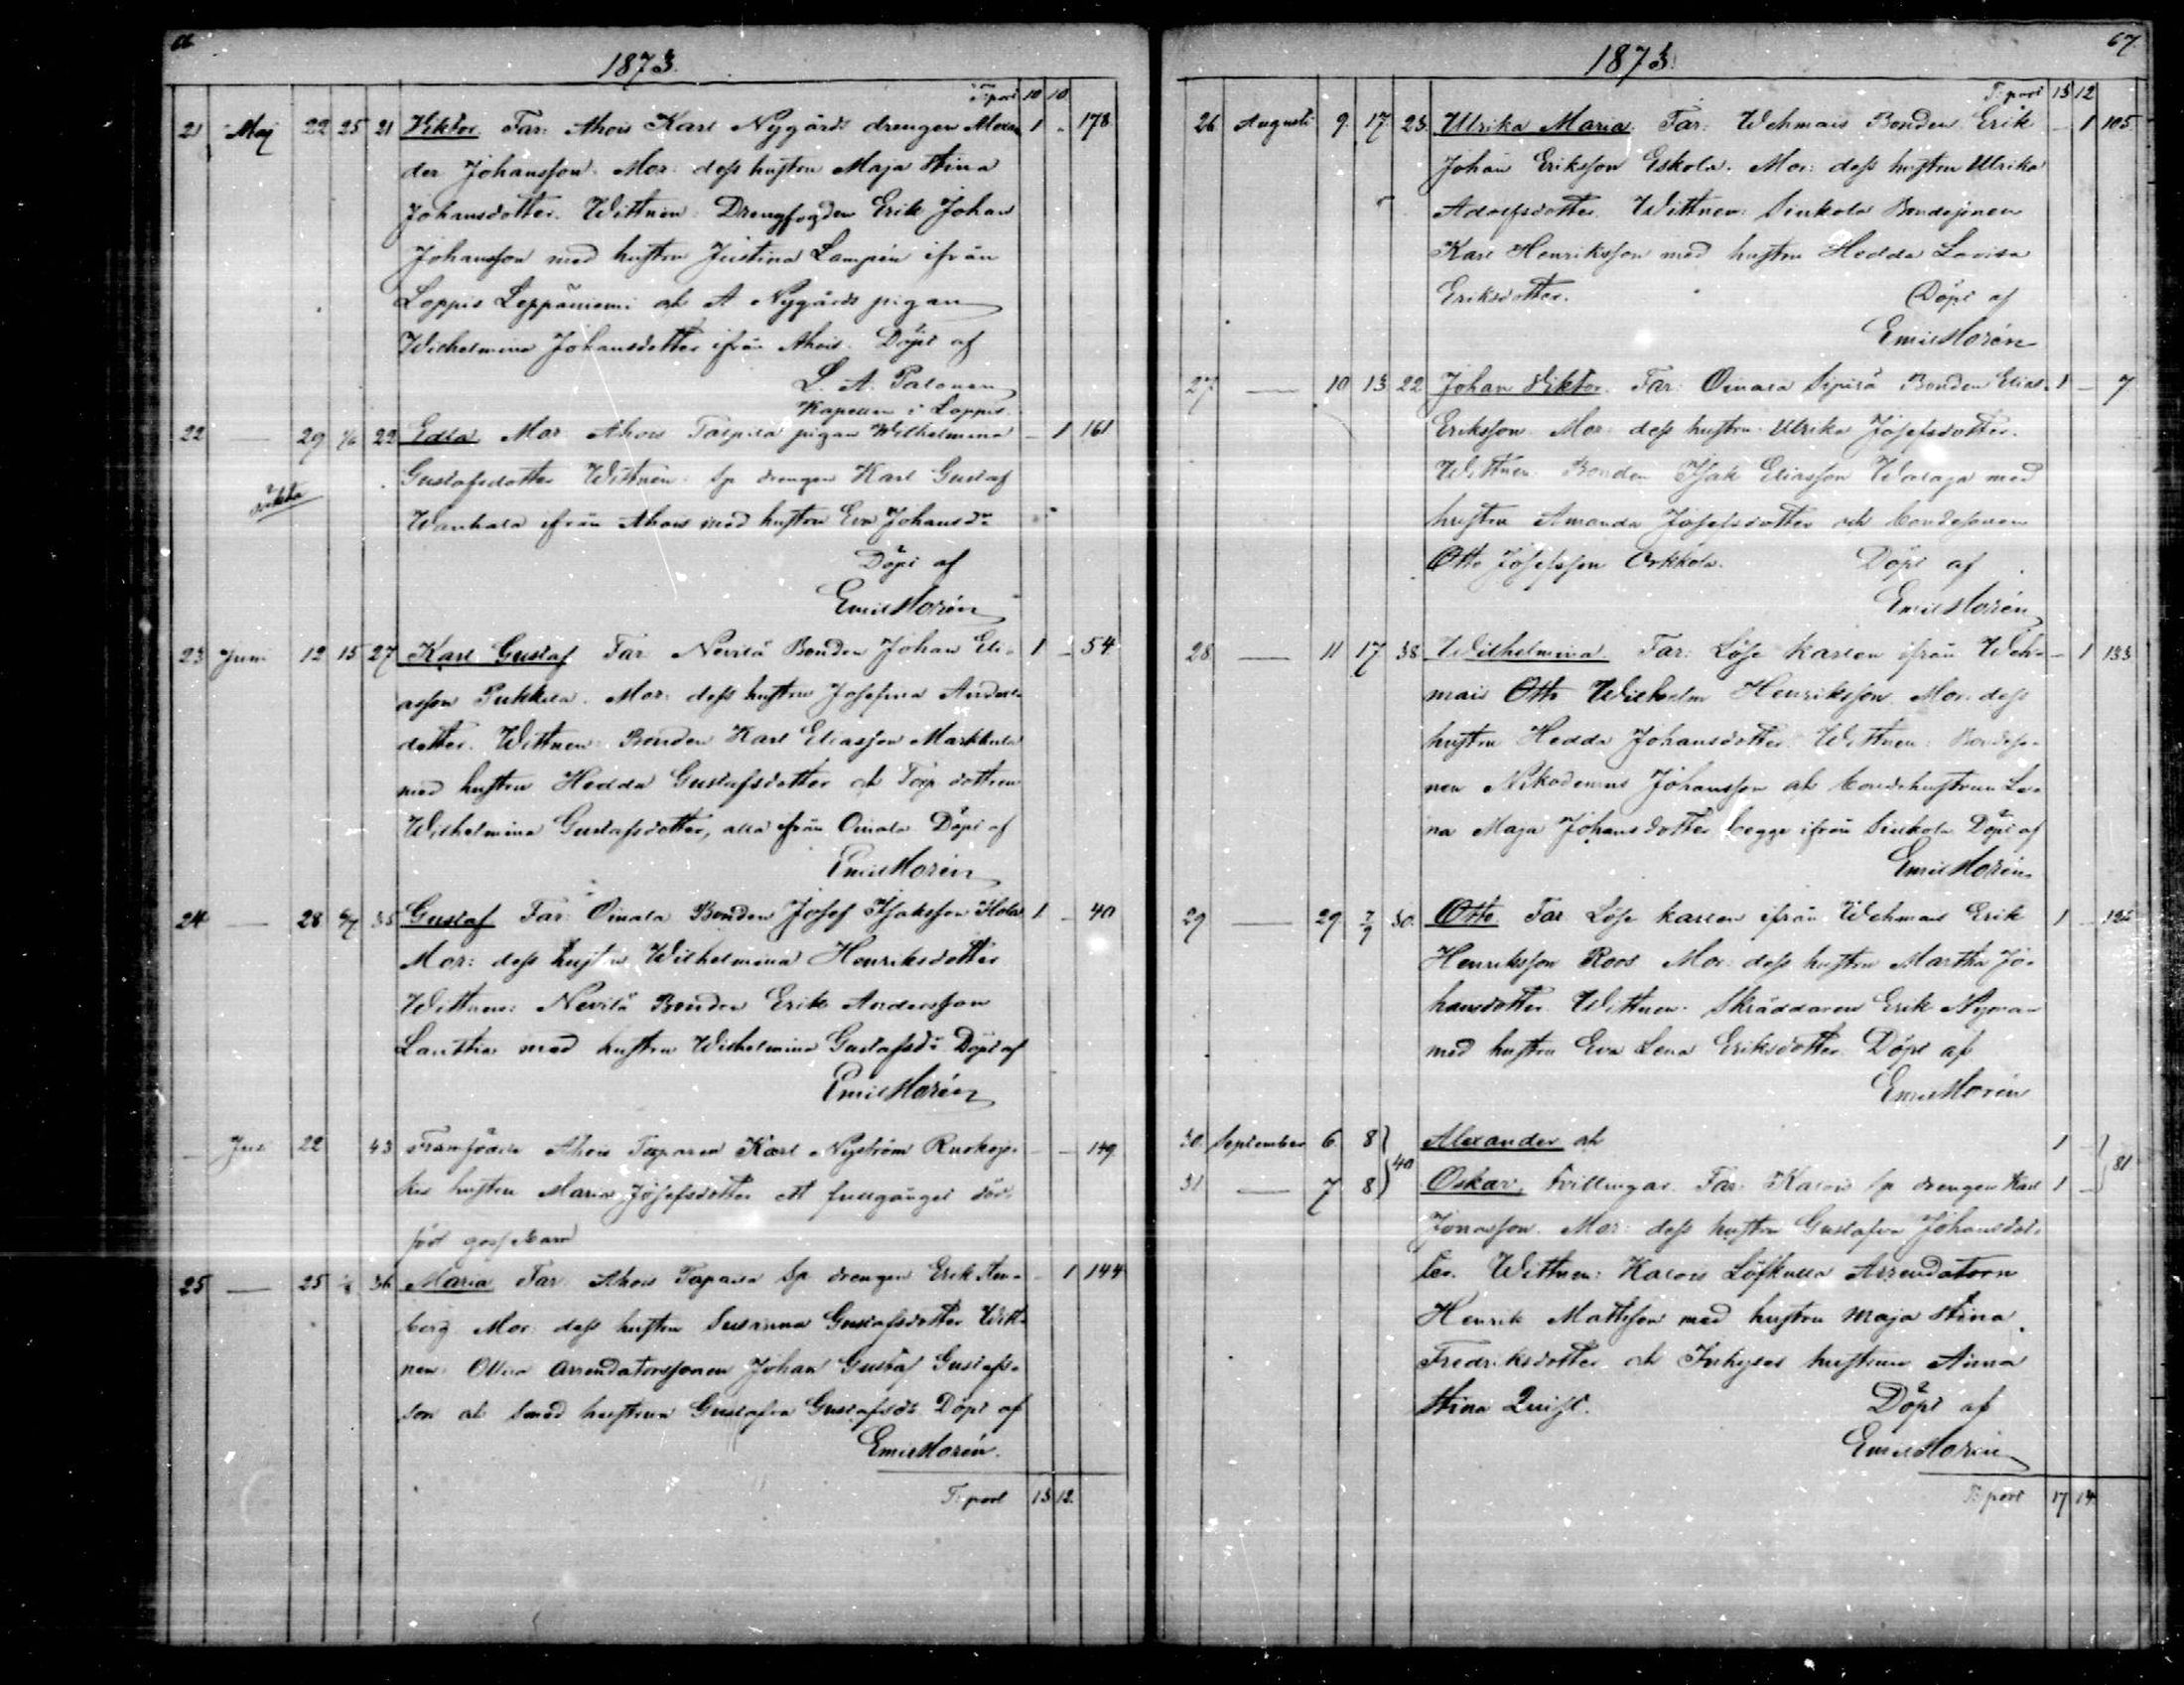 1873.
T:port 10 10
21 Maj 22 25 21 Viktor. Far: Ahois Karl Nygårds drengen Alexan- 1 - 178
der Johansson. Mor: dess hustru Maja Stina
Johansdotter. Wittnen: Drengfogden Erik Johan
Johansson med hustru Justina Lampén ifrån
Loppis Leppäniemi och A Nygårds pigan
Wilhelmina Johansdotter ifrån Ahois. Döpt af
L. A. Palonen
Kapellan i Loppis.
22 — 29 1/6 22 Edla Mor Ahois pigan Wilhelmina - 1 161
oäkta
Gustafsdotter Wittnen: Sp drengen Karl Gustaf
Wanhala ifrån Ahois med hustru Eva Johansdr
Döpt af
Emil Morén
23 Juni 12 15 27 Karl Gustaf Far Nevilä Bonden Johan Eli- 1 - 54
asson Pukkila. Mor: dess hustru Josefina Anders-
dotter. Wittnen: Bonden Karl Eliasson Markkula
med hustru Hedda Gustafsdotter och Torp dottren
Wilhelmina Gustafsdotter, alla ifrån Oinala Döpt af
Emil Morén
24 — 28 35 Gustaf Far: Oinala Bonden Josef Isaksson 1 - 40
Mor: dess hustru Wilhelmina Henriksdotter
Wittnen: Nevilä Bonden Erik Andersson
Lanthia med hustru Wilhelmina Gustafsdr Döpt af
Emil Morén
— Juli 22 43 Framfödde Ahois Torparen Karl Nyström
hustru Maria Josefsdotter ett fullgånget död- - - 149
född gossebarn
25 — 25 36 Maria Far: Ahois Sp drengen Erik - 1 144
berg Mor: dess hustru Susanna Gustafsdotter Witt-
nen: arrendatorssonen Johan Gustaf Gustafs-
son och smed hustrun Gustafva Gustafsdr Döpt af
Emil Morén.
T:port 13 12
67.
1873.
T:port 13 12
26 Augusti 9. 17 23. Ulrika Maria. Far: Wehmais Bonden Erik - 1 105
Johan Eriksson Eskola. Mor: dess hustru Ulrika
Adolfsdotter. Wittnen: Sinkola Bondesonen
Karl Henriksson med hustru Hedda Lovisa
Eriksdotter. Döpt af
Emil Morén
27 — 10 13 22 Johan Viktor. Far: Oinala Sipilä Bonden Elias 1 - 7
Eriksson. Mor: dess hustru Ulrika Josefsdotter.
Wittnen Bonden Isak Eliasson med
hustru Amanda Josefsdotter och bondesonen
Otto Josefsson Orkkola. Döpt af
Emil Morén
28 — 11 17 38 Wilhelmina. Far: Löse karlen ifrån Weh- - 1 133
mais Otto Wilhelm Henriksson. Mor: dess
hustru Hedda Johansdotter. Wittnen: Bondeso-
nen Nikodemus Johansson och bondehustrun Le-
na Maja Johansdotter begge ifrån Sinkola Döpt af
Emil Morén
29 — 29 7/9 30. Otto. Far Löse karlen ifrån Wehmais Erik 1 -
Henriksson Roos Mor: dess hustru Martha Jo-
hansdotter. Wittnen: Skräddaren Erik Nyman
med hustru Eva Lena Eriksdotter. Döpt af
Emil Morén
30. September 6 8 Alexander och 1 -
31 — 7 8 40 Oskar, tvillingar. Far: Kalois Sp drengen Karl 1 - 81
Jonasson. Mor: dess hustru Gustafva Johansdot-
ter. Wittnen: Kalois Löfkulla Arrendatorn
Henrik Mattsson med hustru Maja Stina
Fredriksdotter och Inhyses hustrun Anna
Stina Quist. Döpt af
Emil Morén
T:port 17 14